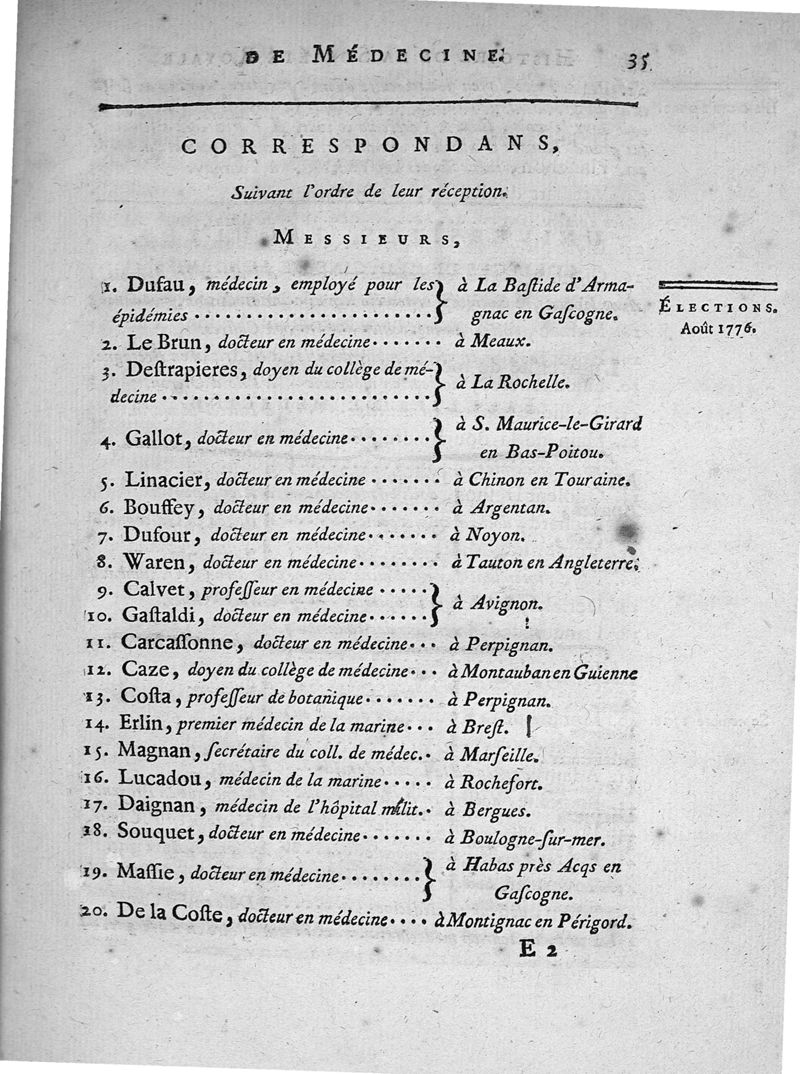 DE MÉDECINE. 35
CORRESPONDANS,
Suivant l'ordre de leur réception.
MESSIEURS,
1. Dufau, médecin, employé pour les } à La Baſtide d'Arma-
épidémies ........................ } gnac en Gaſcogne.
ÉLECTIONS.
Août 1776.
2. Le Brun, docteur en médecine ....... à Meaux.
3. Deſtrapieres, doyen du collège de mé- }
decine ........................... } à La Rochelle.
4. Gallot, docteur en médecine ........ } à S. Maurice-le-Girard
en Bas-Poitou.
5. Linacier, docteur en médecine ....... à Chinon en Touraine.
6. Bouffey, docteur en médecine ....... à Argentan.
7. Dufour, docteur en médecine ....... à Noyon.
8. Waren, docteur en médecine ........ à Tauton en Angleterre.
9. Calvet, profeſſeur en médecine ..... }
10. Gaſtaldi, docteur en médecine ...... } à Avignon.
11. Carcaſſonne, docteur en médecine ... à Perpignan.
12. Caze, doyen du collège de médecine ... à Montauban en Guienne
13. Coſta, profeſſeur de botanique ....... à Perpignan.
14. Erlin, premier médecin de la marine ... à Breſt.
15. Magnan, ſecrétaire du coll. de médec. . à Marſeille.
16. Lucadou, médecin de la marine ..... à Rochefort.
17. Daignan, médecin de l'hôpital milit. . à Bergues.
18. Souquet, docteur en médecine ....... à Boulogne-ſur-mer.
19. Maſſie, docteur en médecine ........ } à Habas près Acqs en
Gaſcogne.
20. De la Coſte, docteur en médecine .... à Montignac en Périgord.
E 2